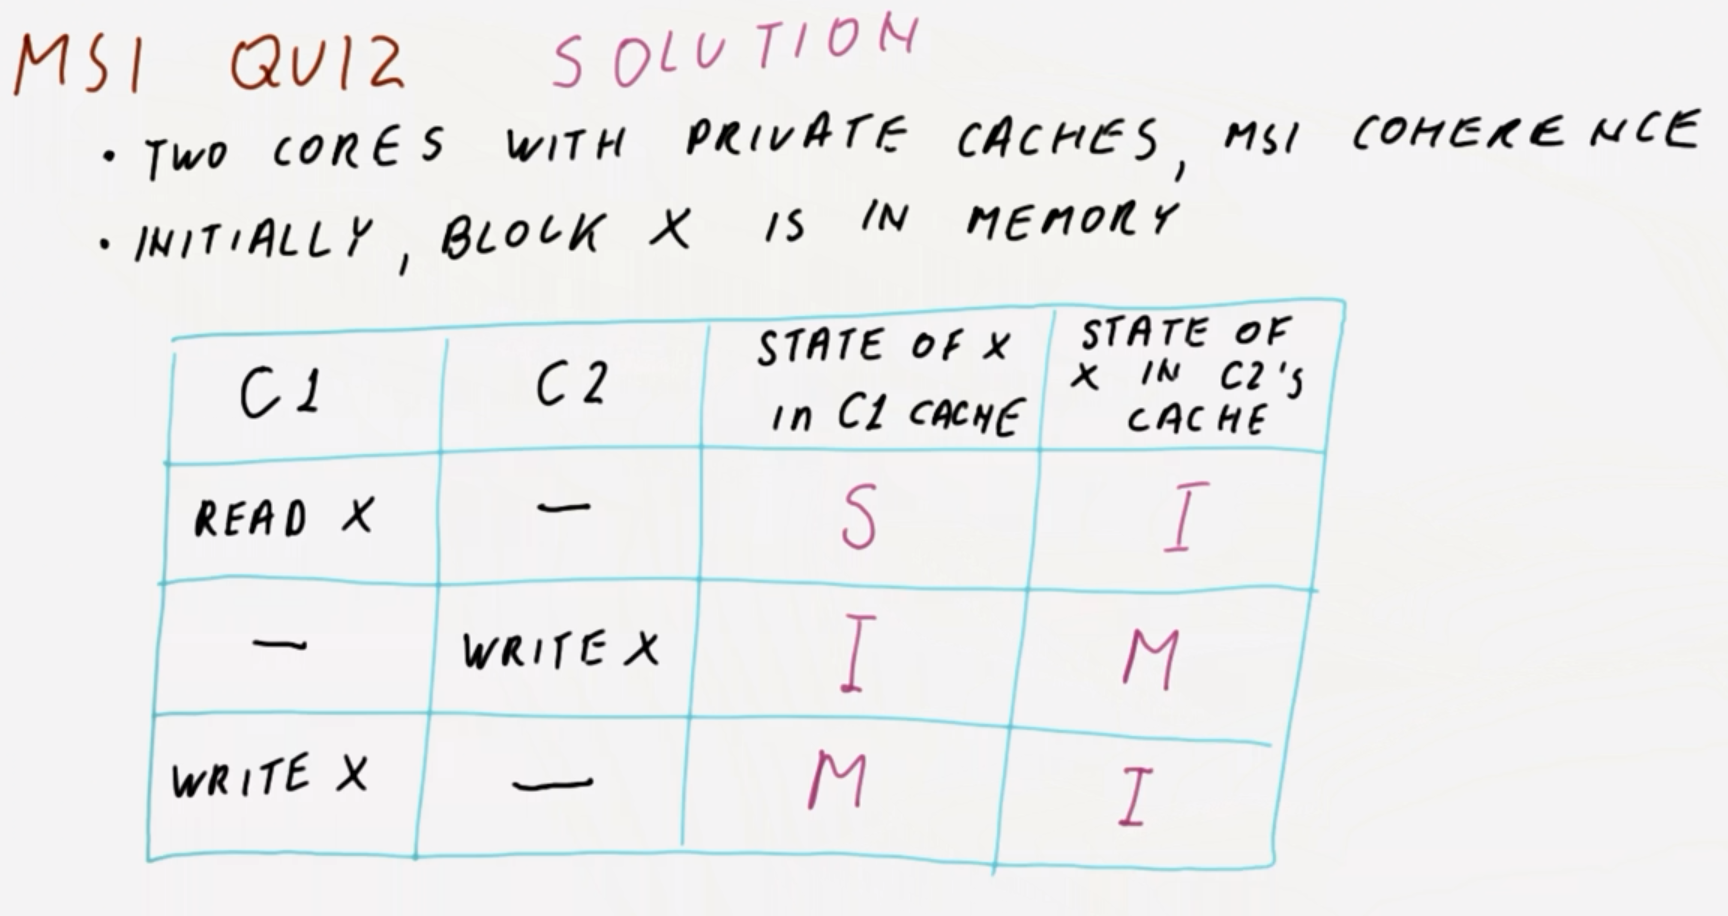 MSI QUIZ SOLUTION
• TWO CORES WITH PRIVATE CACHES, MSI COHERENCE
• INITIALLY, BLOCK X IS IN MEMORY
C1
C2
STATE OF X
in C1 CACHE
STATE OF
X IN C2's
CACHE
READ X
—
S
I
—
WRITE X
I
M
WRITE X
—
M
I